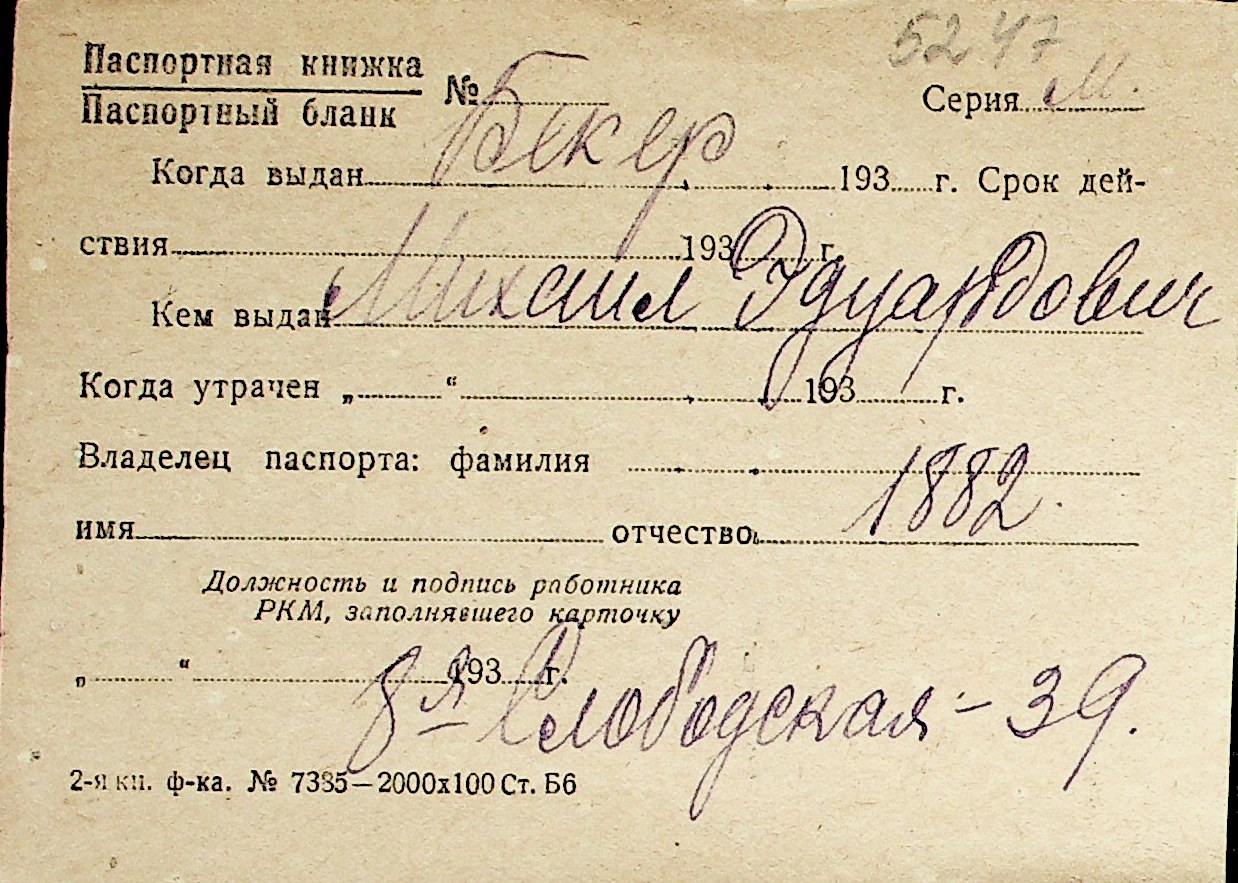 5247
Паспортная книжка
Паспортный бланк № Серия М.
Бекер
Когда выдан 193 г. Срок дей-
ствия 193 г.
Михаил Эдуардович
Кем выдан
Когда утрачен „ “ 193 г.
Владелец паспорта: фамилия
1882.
имя отчество
Должность и подпись работника
РКМ, заполнявшего карточку
„ “ 193 г.
8я Слободская - 39.
2-я кн. ф-ка. № 7385—2000х100 Ст. Б6